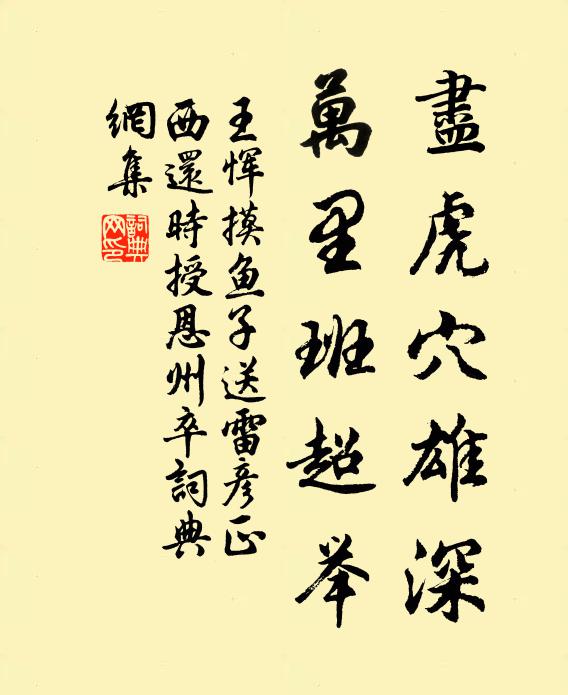 盡虎穴雄深
萬里班超举
王惲摸鱼子送雷彦正
西還時授恩州卒詞典
網集
詞典網印